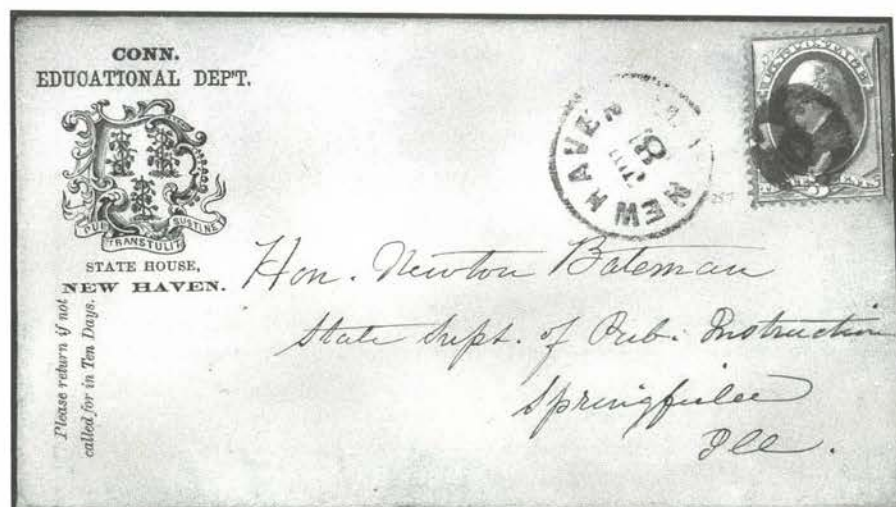 CONN.
EDUCATIONAL DEP'T.
QUI
TRANSTULIT
SUSTINET
STATE HOUSE,
NEW HAVEN.
Please return if not
called for in Ten Days.
NEW HAVEN
18
Hon. Newton Bateman
State Supt. of Pub. Instruction
Springfield
Ill.